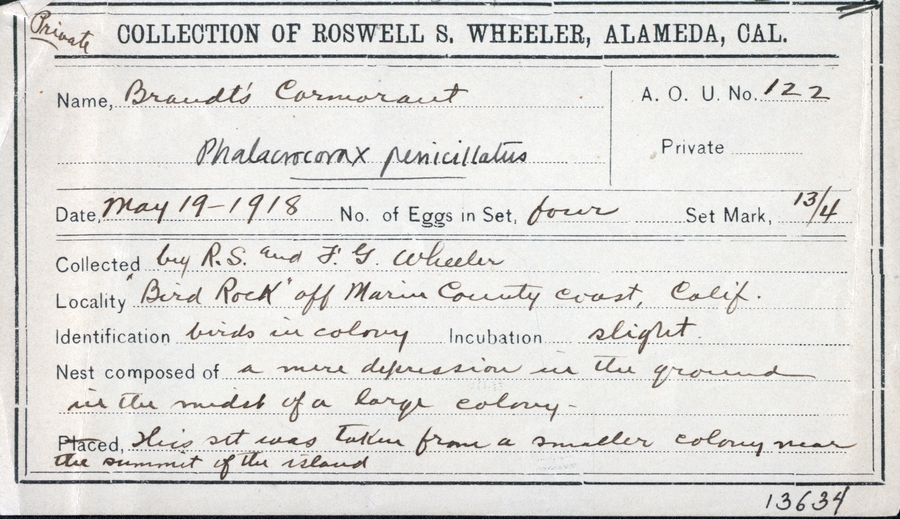 Private
COLLECTION OF ROSWELL S. WHEELER, ALAMEDA, CAL.
Name, Brandt's Cormorant
A. O. U. No. 122
Phalacrocorax penicillatus
Private
Date, May 19-1918 No. of Eggs in Set, four Set Mark, 13/4
Collected by R.S. and F. G. Wheeler
Locality "Bird Rock" off Marin County coast, Calif.
Identification birds in colony Incubation slight.
Nest composed of a mere depression in the ground
in the midst of a large colony-
Placed, This set was taken from a smaller colony near
the summit of the island
13634